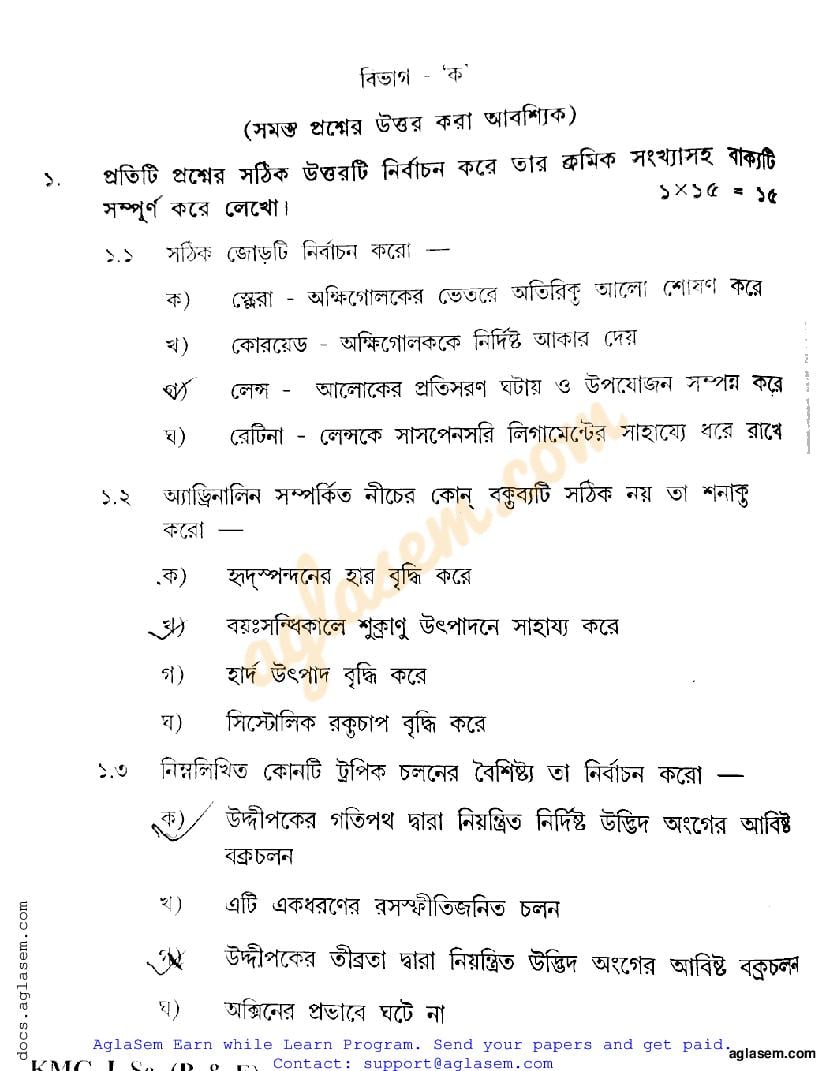 বিভাগ - 'ক'
(সমস্ত প্রশ্নের উত্তর করা আবশ্যিক)
১. প্রতিটি প্রশ্নের সঠিক উত্তরটি নির্বাচন করে তার ক্রমিক সংখ্যাসহ বাক্যটি
সম্পূর্ণ করে লেখো। ১×১৫ = ১৫
১.১ সঠিক জোড়টি নির্বাচন করো —
ক) স্ক্লেরা - অক্ষিগোলকের ভেতরে অতিরিক্ত আলো শোষণ করে
খ) কোরয়েড - অক্ষিগোলককে নির্দিষ্ট আকার দেয়
গ) লেন্স - আলোকের প্রতিসরণ ঘটায় ও উপযোজন সম্পন্ন করে
ঘ) রেটিনা - লেন্সকে সাসপেনসরি লিগামেন্টের সাহায্যে ধরে রাখে
১.২ অ্যাড্রিনালিন সম্পর্কিত নীচের কোন্ বক্তব্যটি সঠিক নয় তা শনাক্ত
করো —
ক) হৃদ্‌স্পন্দনের হার বৃদ্ধি করে
খ) বয়ঃসন্ধিকালে শুক্রাণু উৎপাদনে সাহায্য করে
গ) হার্দ উৎপাদ বৃদ্ধি করে
ঘ) সিস্টোলিক রক্তচাপ বৃদ্ধি করে
১.৩ নিম্নলিখিত কোনটি ট্রপিক চলনের বৈশিষ্ট্য তা নির্বাচন করো —
ক) উদ্দীপকের গতিপথ দ্বারা নিয়ন্ত্রিত নির্দিষ্ট উদ্ভিদ অংগের আবিষ্ট
বক্রচলন
খ) এটি একধরণের রসস্ফীতিজনিত চলন
গ) উদ্দীপকের তীব্রতা দ্বারা নিয়ন্ত্রিত উদ্ভিদ অংগের আবিষ্ট বক্রচলন
ঘ) অক্সিনের প্রভাবে ঘটে না
aglasem.com
docs.aglasem.com
AglaSem Earn while Learn Program. Send your papers and get paid.
Contact: support@aglasem.com
aglasem.com